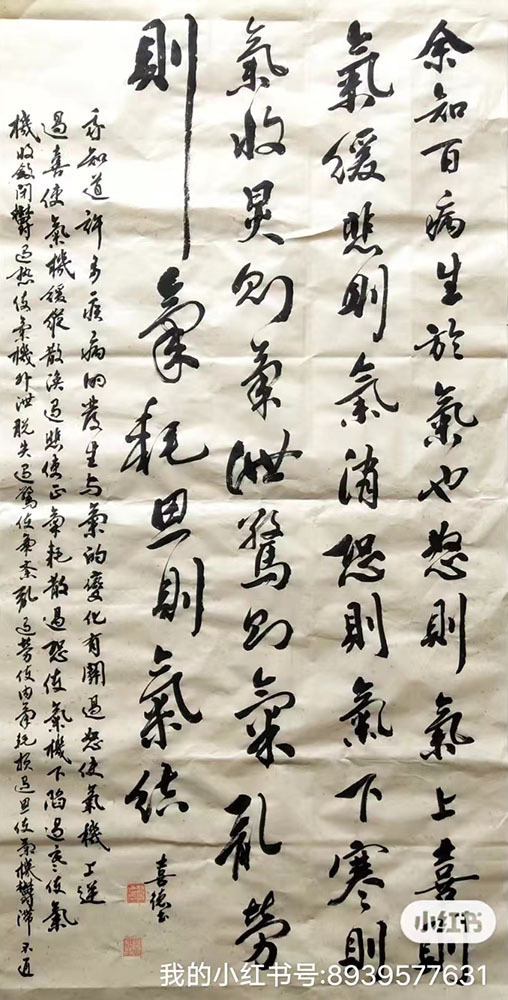 余知百病生於氣也怒則氣上喜則
氣緩悲則氣消恐則氣下寒則
氣收炅則氣泄驚則氣亂勞
則氣耗思則氣結
喜德書
我知道許多疾病的發生与氣的變化有關過怒使氣機上逆
過喜使氣機緩縱散渙過悲使正氣耗散過恐使氣機下陷過寒使氣
機收斂閉鬱過热使氣機外泄脫失過驚使氣紊亂過勞使内氣耗損過思使氣機鬱滯不通
小红书
我的小红书号:8939577631